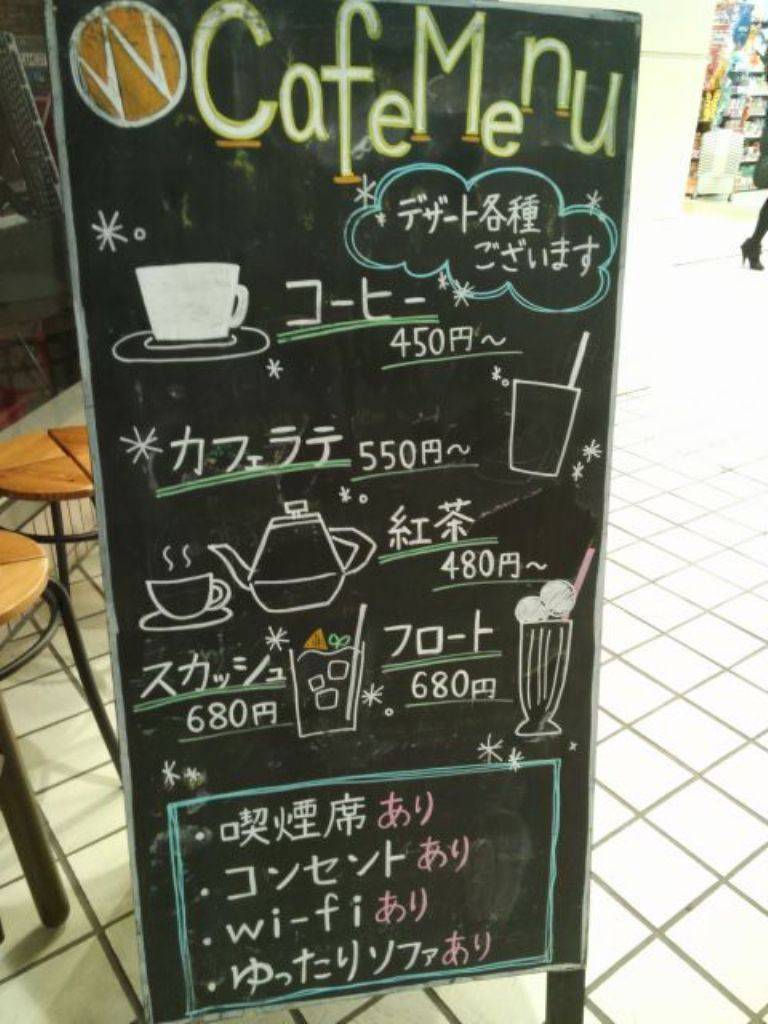 W Cafe Menu
デザート各種
ございます
コーヒー
450円～
カフェラテ 550円～
紅茶
480円～
フロート
680円
スカッシュ
680円
・喫煙席あり
・コンセントあり
・wi-fiあり
・ゆったりソファあり